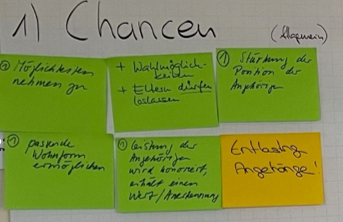 1) Chancen (Allgemein)
① Möglichkeiten
nehmen zu
+ Wahlmöglich-
keiten
+ Eltern dürfen
loslassen
① Stärkung der
Position der
Angehörigen
① passende
Wohnform
ermöglichen
① Leistung der
Angehörigen
wird honoriert,
erhält einen
Wert / Anerkennung
Entlastung
Angehörige!